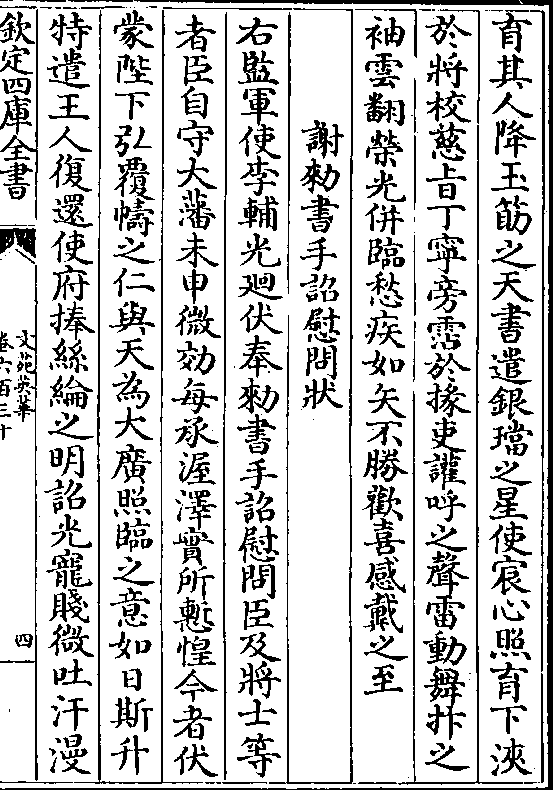 育其人降玉筯之天書遣銀璫之星使宸心照育下浹
於將校慈㫖丁寧旁霑於掾吏讙呼之聲雷動舞抃之
袖雲翻榮光併臨愁疾如失不勝歡喜感戴之至
謝勅書手詔慰問狀
右監軍使李輔光廻伏奉勅書手詔慰問臣及將士等
者臣自守大藩未申微効每承渥澤實所慙惶今者伏
蒙陛下弘覆幬之仁與天為大廣照臨之意如日斯升
特遣王人復還使府捧絲綸之明詔光寵賤微吐汗漫
欽定四庫全書
文苑英華
卷六百三十
四